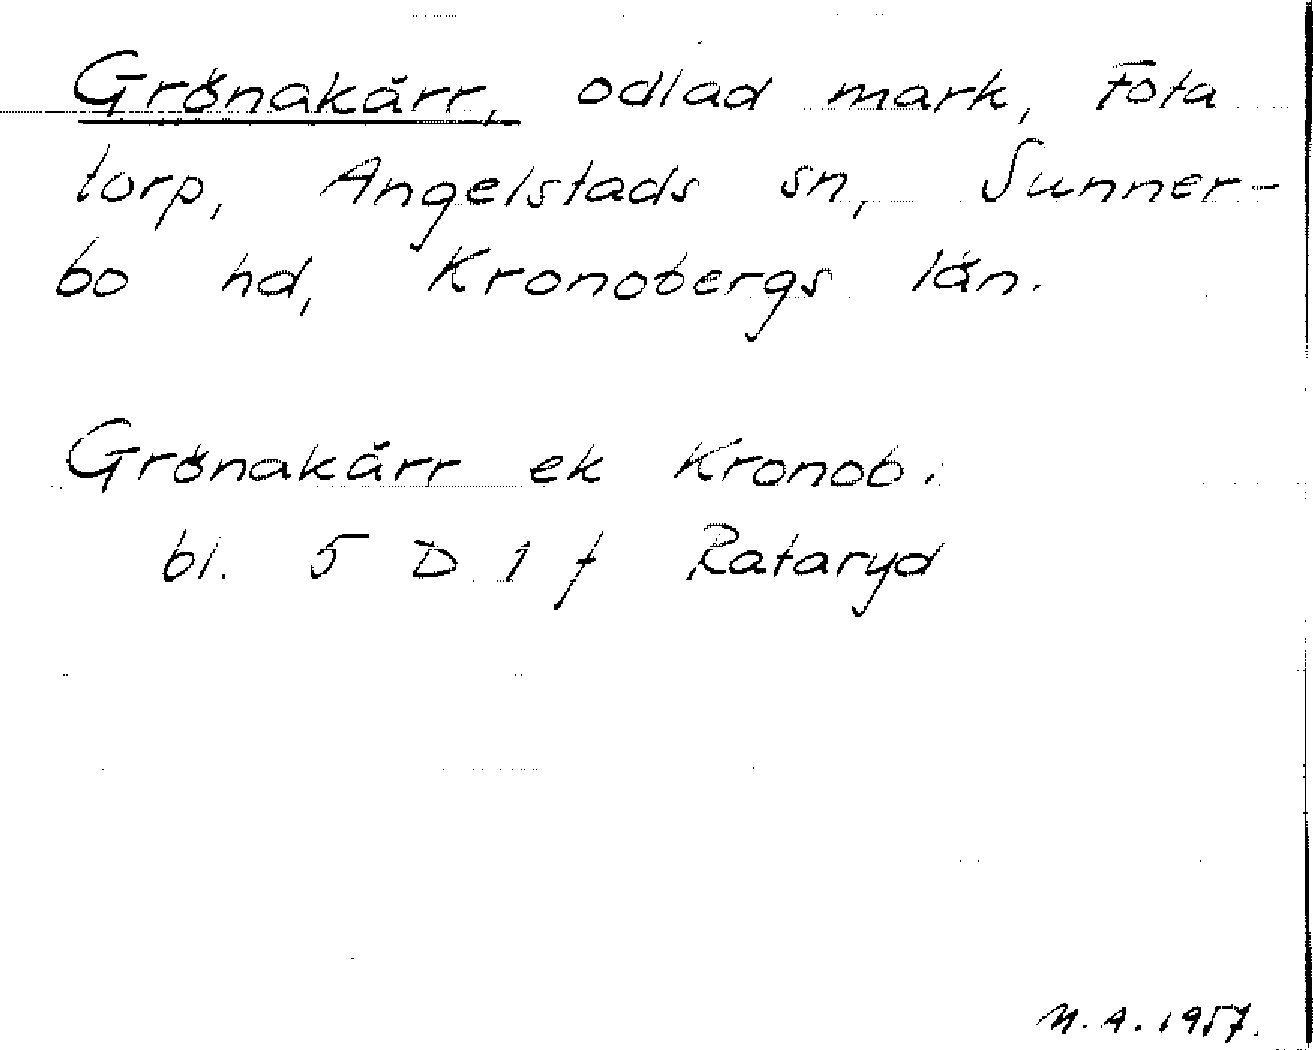 Grönakärr, odlad mark, Föta
torp, Angelstads sn, Sunner-
bo hd, Kronobergs län.
Grönakärr ek Kronob.
bl. 5 D 1 f Rataryd
M. A. 1957.